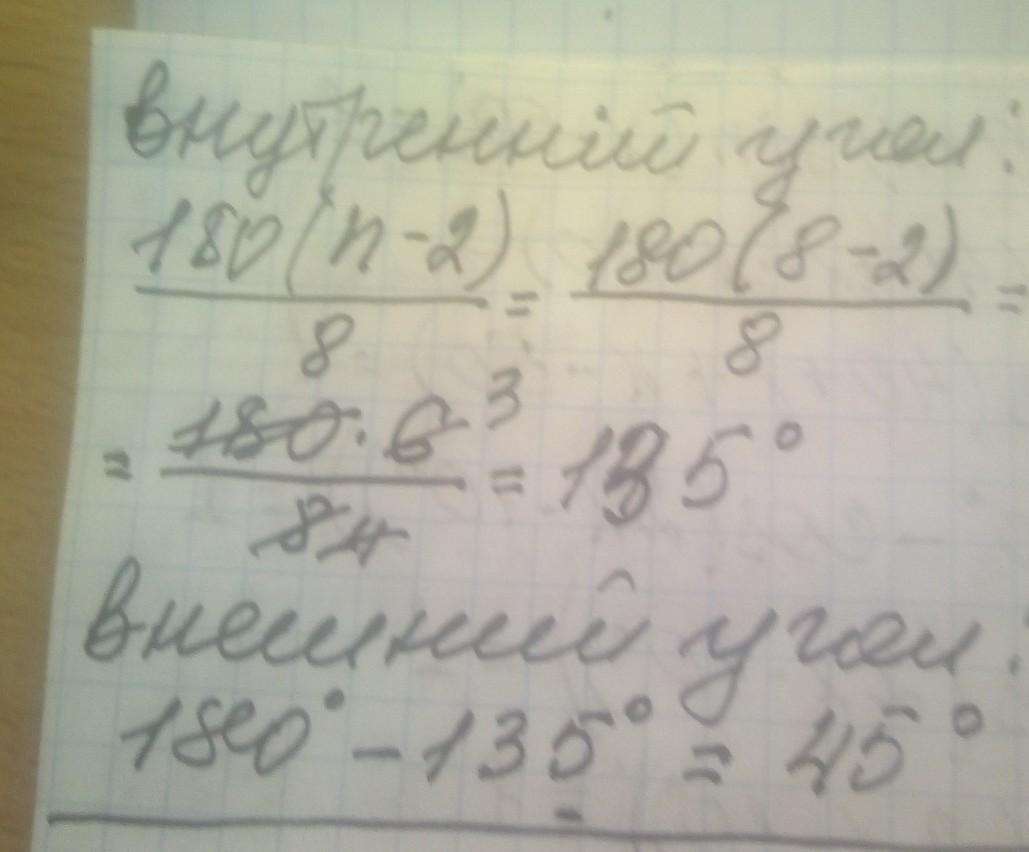 внутренний угол:
180(n-2)/8 = 180(8-2)/8 =
= 180·6 3/8 4 = 135°
внешний угол:
180° - 135° = 45°